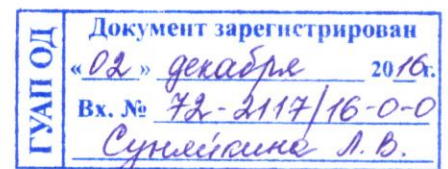 ГУАП ОД
Документ зарегистрирован
«02» декабря 2016г.
Вх. № 72-2117/16-0-0
Сунлйкина Л. В.